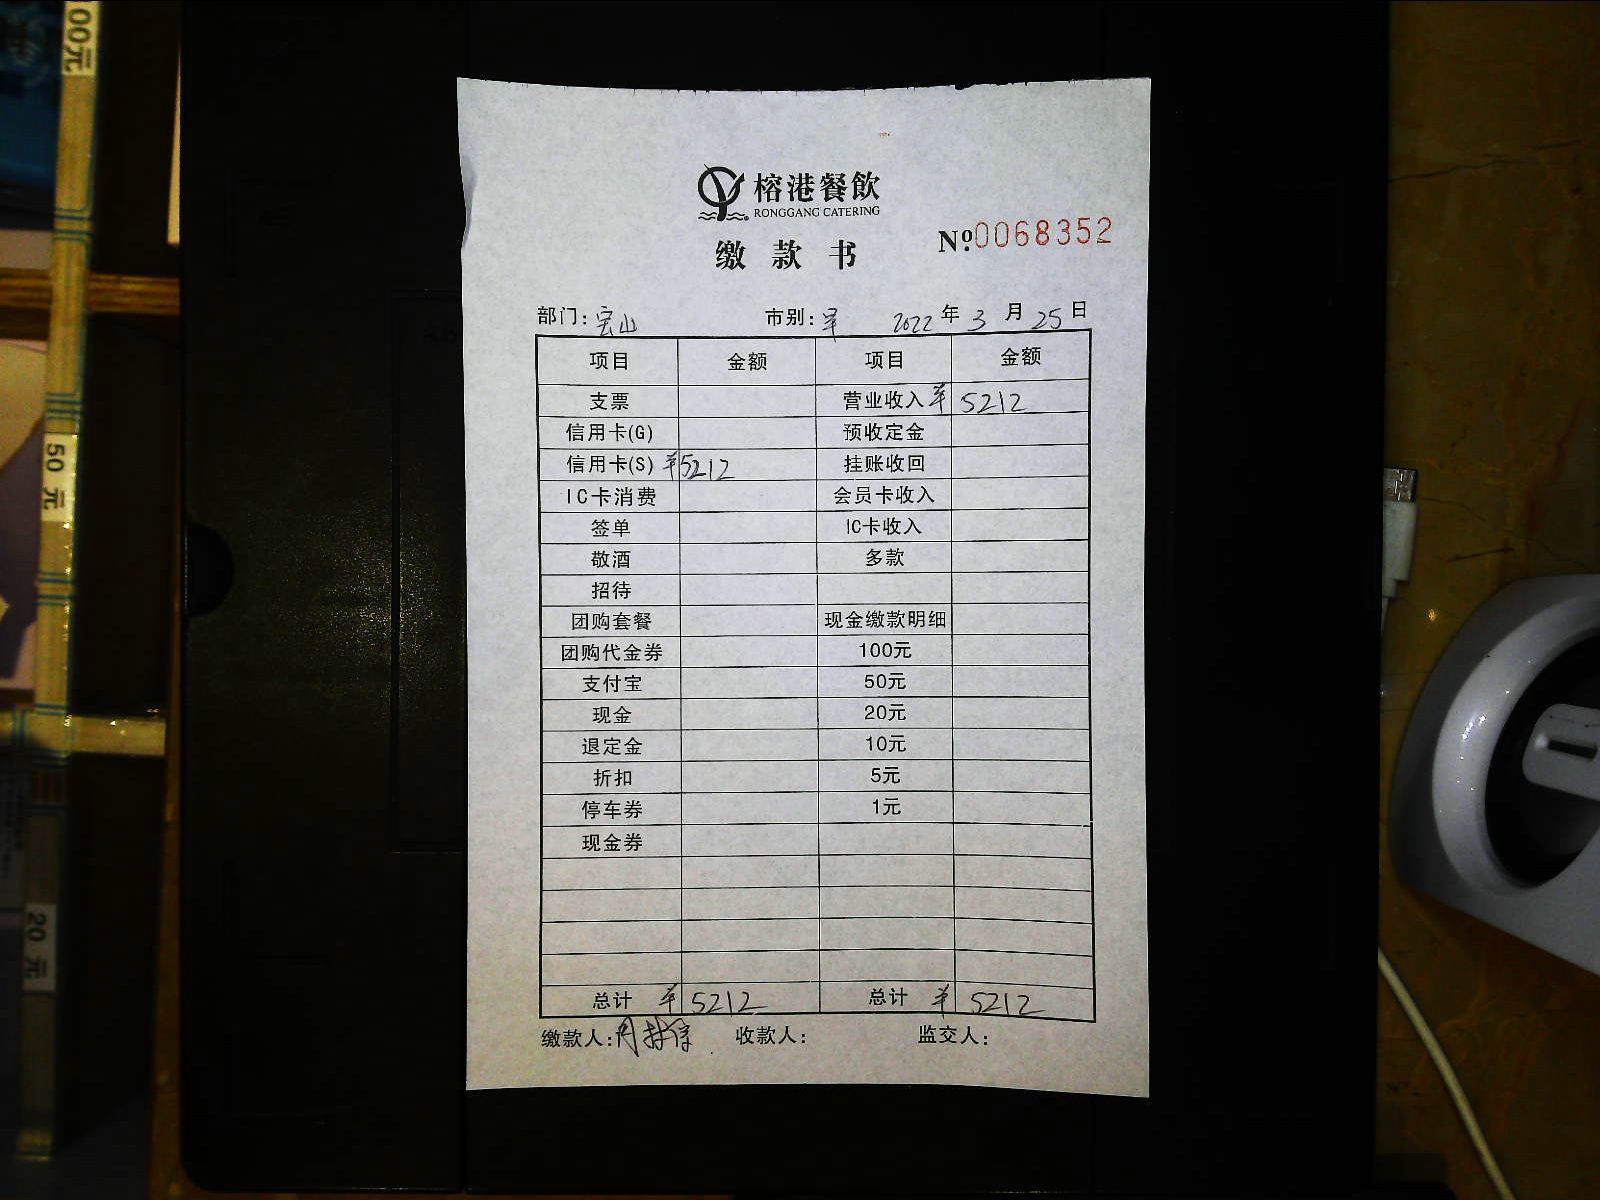 00元
50元
20元
榕港餐飲
RONGGANG CATERING
缴款书
Nº0068352
部门: 宝山 市别: 早 2022年3月25日
项目 金额 项目 金额
支票 营业收入 ¥5212
信用卡(G) 预收定金
信用卡(S) ¥5212 挂账收回
IC卡消费 会员卡收入
签单 IC卡收入
敬酒 多款
招待
团购套餐 现金缴款明细
团购代金券 100元
支付宝 50元
现金 20元
退定金 10元
折扣 5元
停车券 1元
现金券
总计 ¥5212 总计 ¥5212
缴款人: 收款人: 监交人: